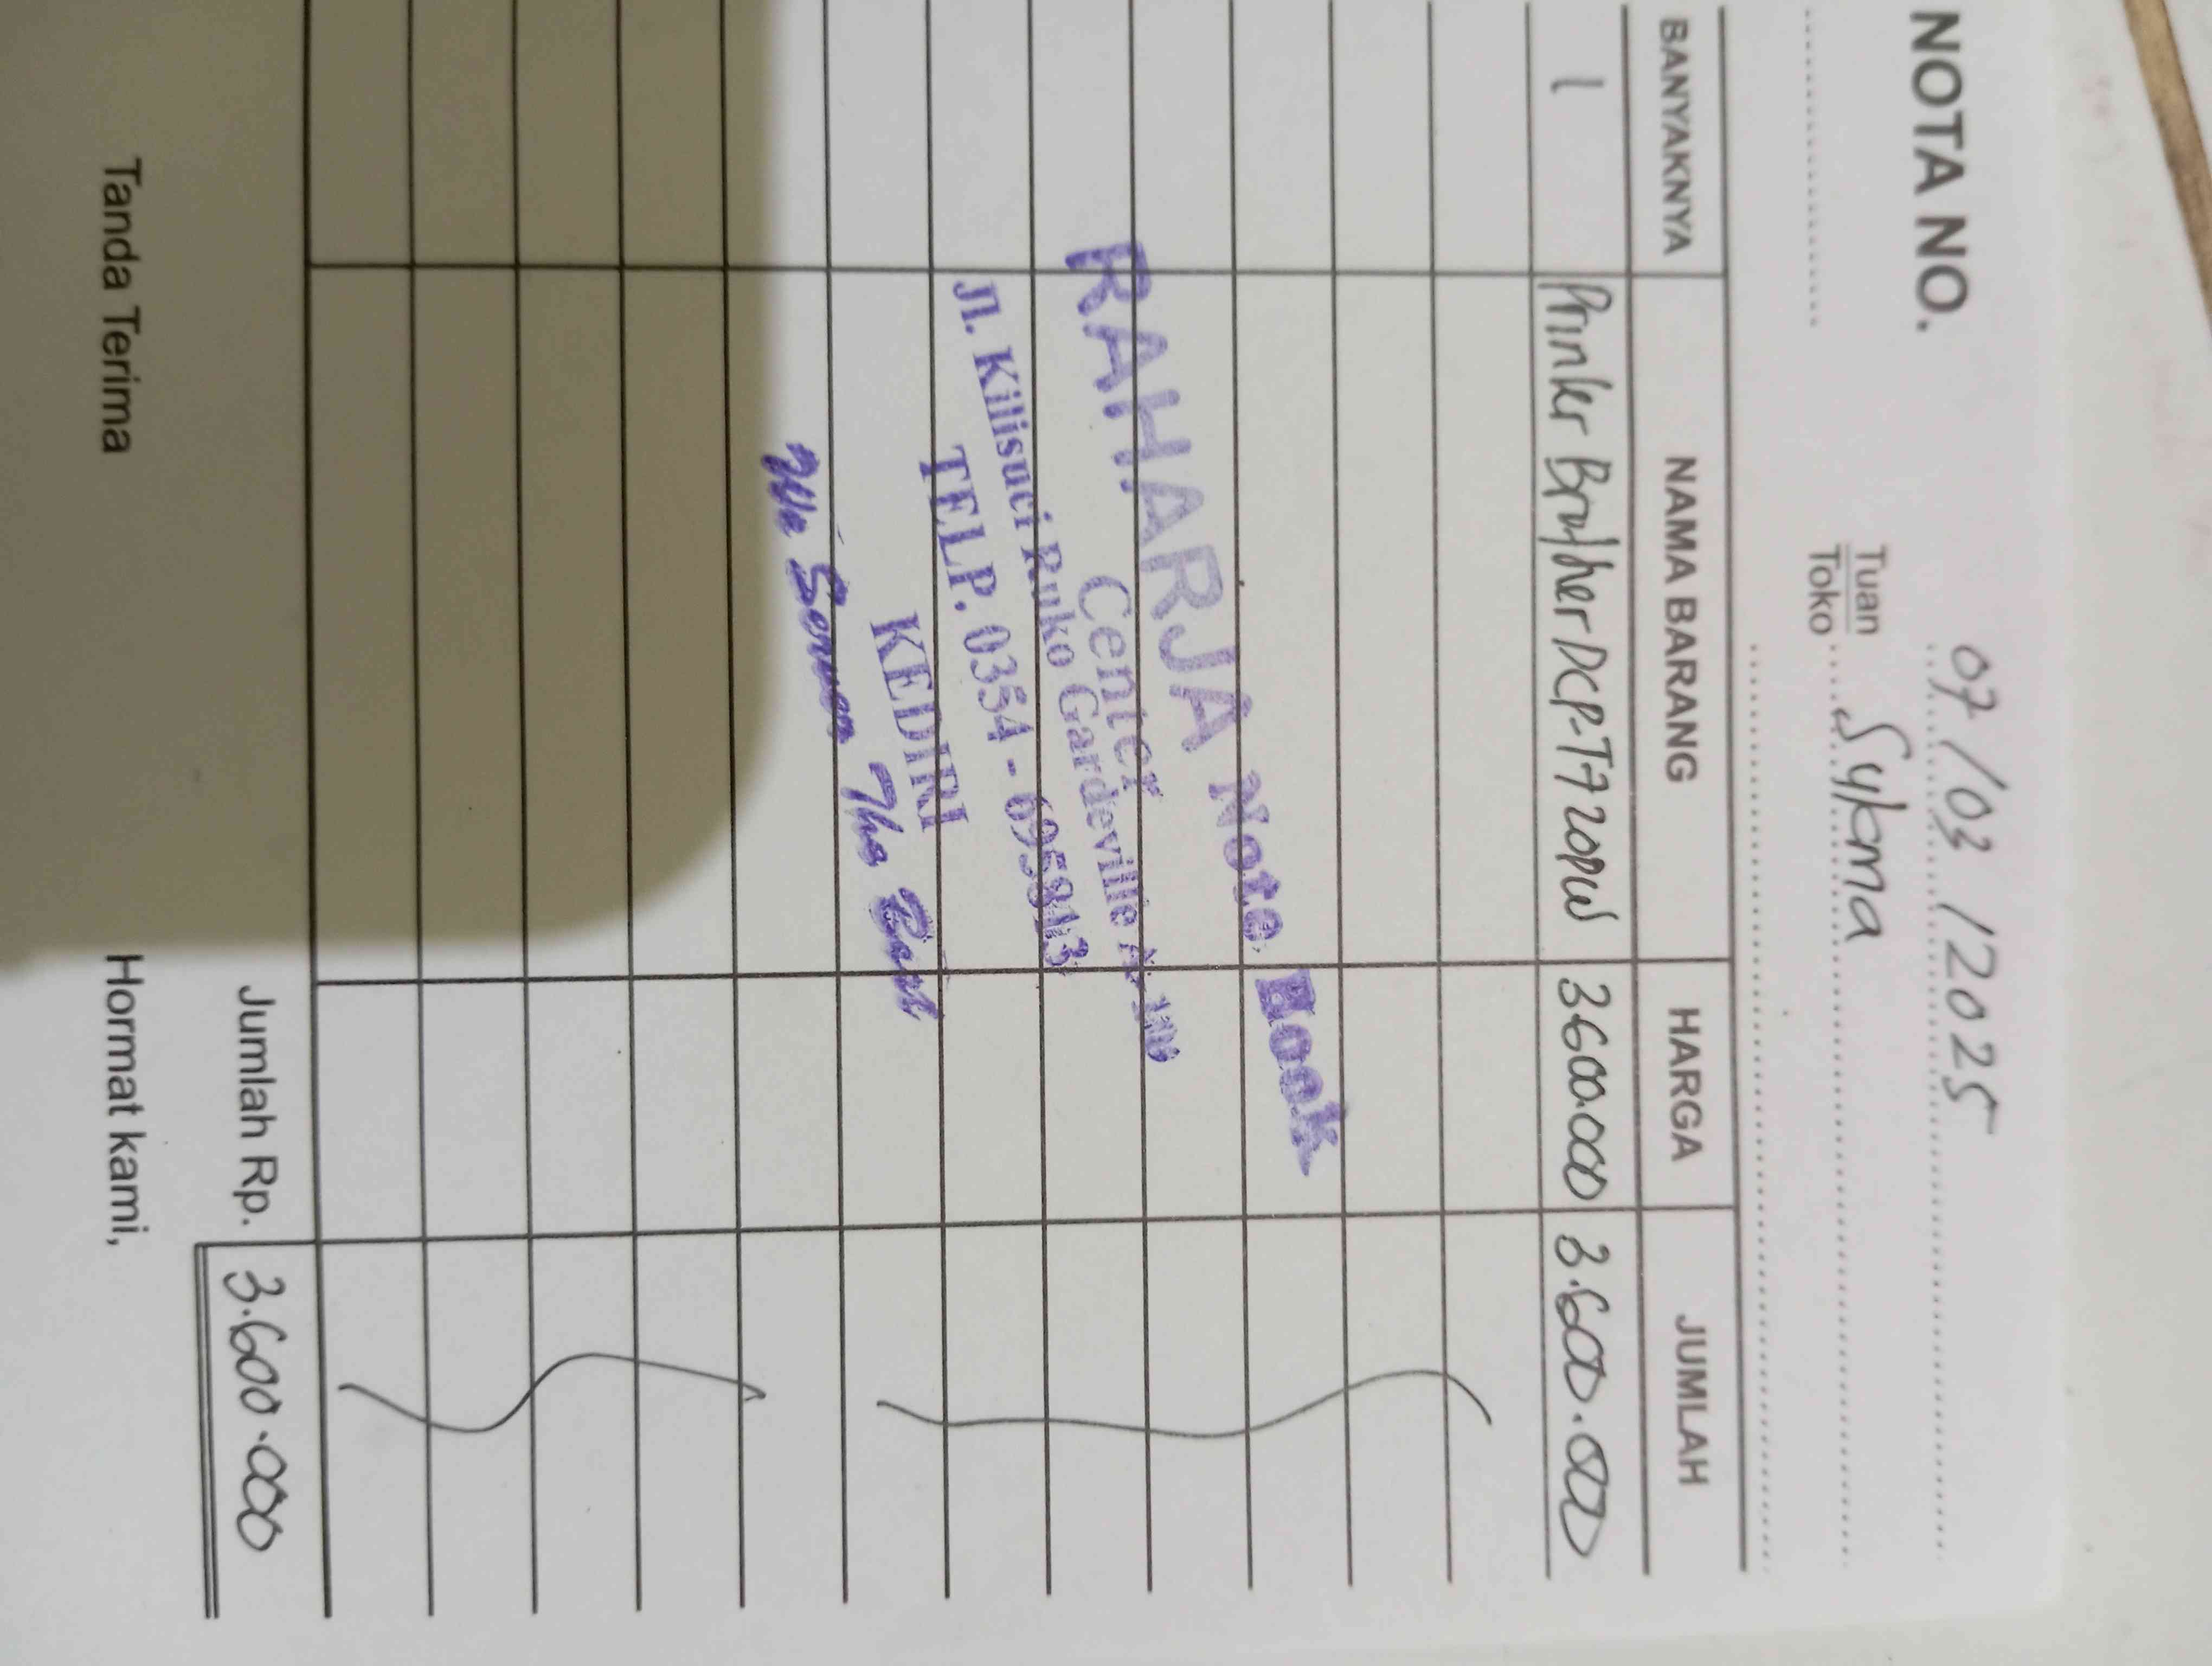 07/03/2025
NOTA NO.
Tuan
Toko Sykma
BANYAKNYA NAMA BARANG HARGA JUMLAH
1 Printer Brother DCP-T720DW 3.600.000 3.600.000
RAHARJA Note Book
Center
Jl. Kilisuci Ruko Gardeville
TELP. 0354 -
KEDIRI
We Server The Best
Jumlah Rp. 3.600.000
Tanda Terima Hormat kami,